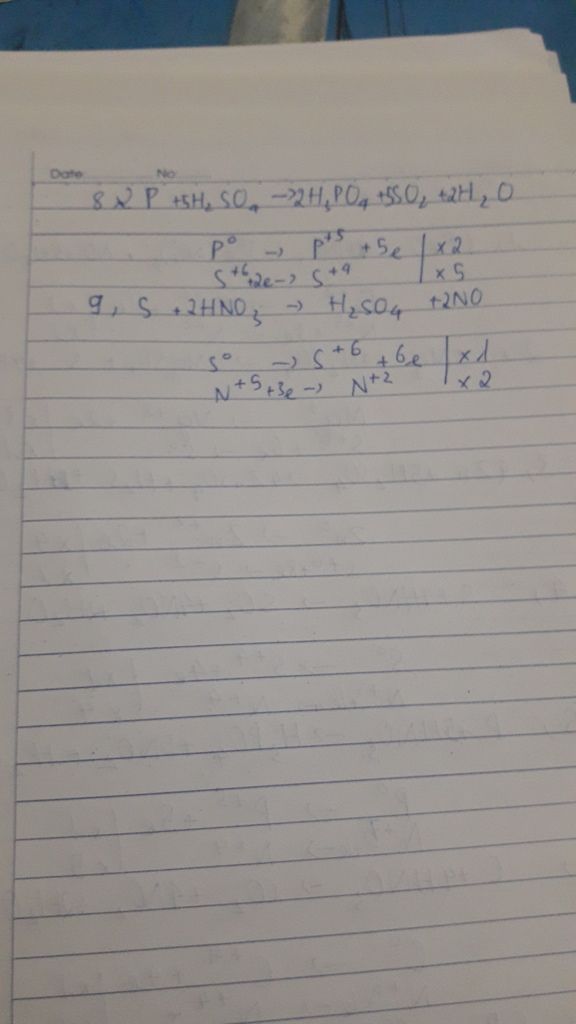 Date No
8, 2 P + 5H₂SO₄ → 2H₃PO₄ + 5SO₂ + 2H₂O
P⁰ → P⁺⁵ + 5e | x2
S⁺⁶ + 2e → S⁺⁴ | x5
9, S + 2HNO₃ → H₂SO₄ + 2NO
S⁰ → S⁺⁶ + 6e | x1
N⁺⁵ + 3e → N⁺² | x2